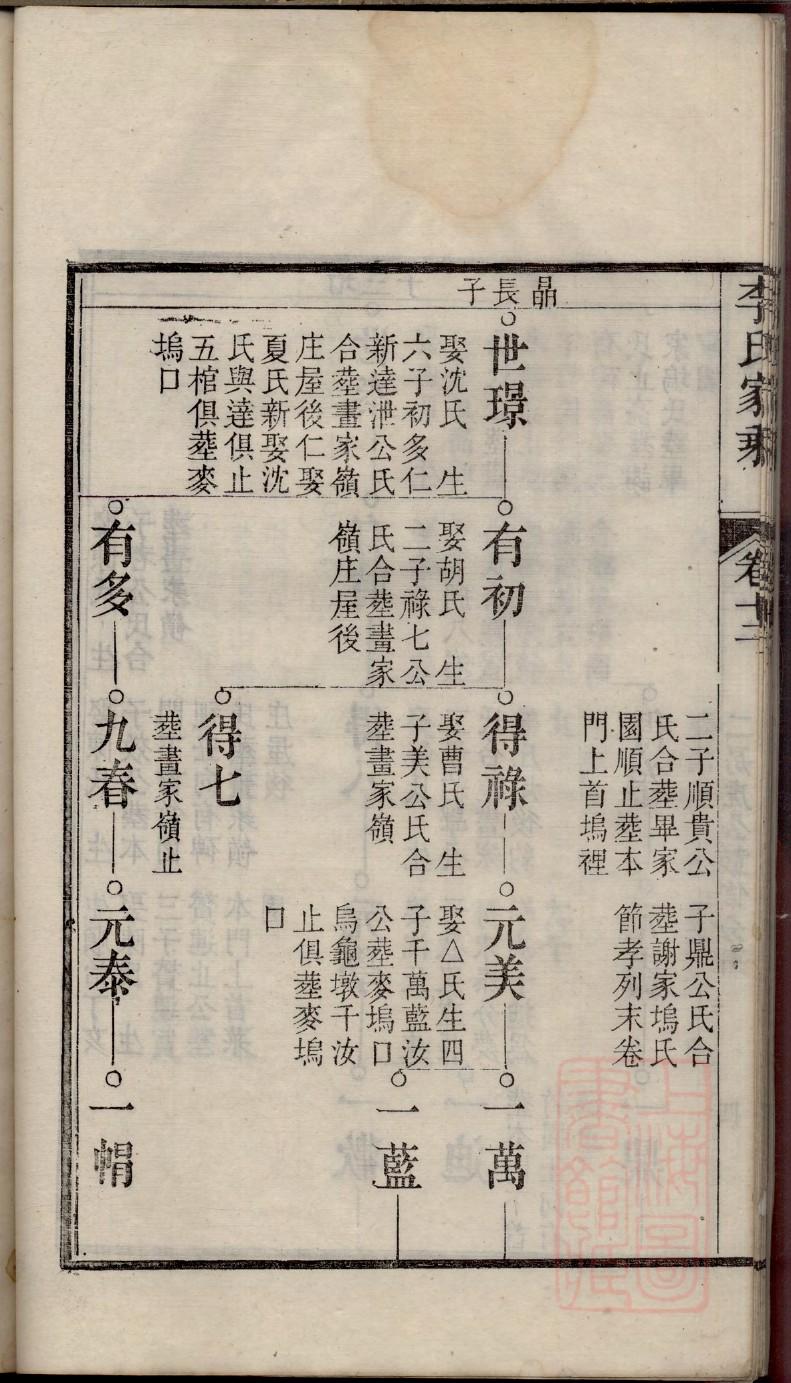 李氏家乘
卷十三
二子順貴公
氏合塟畢家
園順止塟本
門上首塢裡
子鼎公氏合
塟謝家塢氏
節孝列末卷
晶長子
世璟
娶沈氏 生
六子初多仁
新達泄公氏
合塟畫家嶺
庄屋後仁娶
夏氏新娶沈
氏與達俱止
五棺俱塟麥
塢口
有初
娶胡氏 生
二子祿七公
氏合塟畫家
嶺庄屋後
得祿
娶曹氏 生
子美公氏合
塟畫家嶺
元美
娶△氏生四
子千萬藍汝
公塟麥塢口
烏龜墩千汝
止俱塟麥塢
口
一萬
一藍
得七
塟畫家嶺止
有多
九春
元泰
一帽